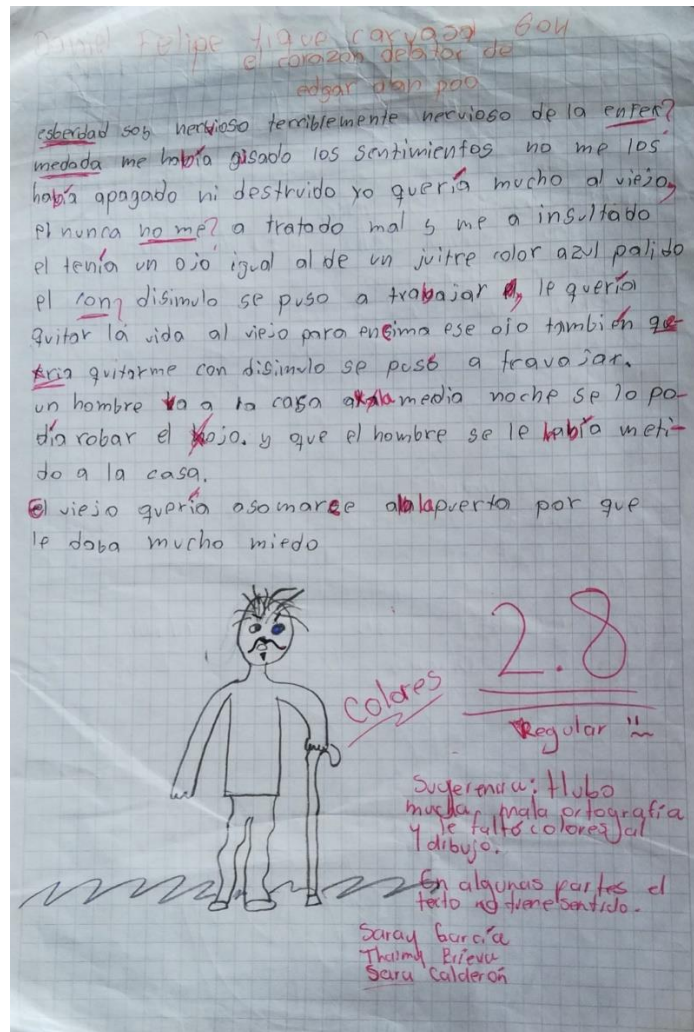 Daniel Felipe tique carvajal 604
el corazon delator de
edgar alan poo
esberdad soy nervioso terriblemente nervioso de la enfer?
medada me había gisado los sentimientos no me los
había apagado ni destruido yo quería mucho al viejo,
el nunca no me? a tratado mal y me a insultado
el tenía un ojo igual al de un juitre color azul palido
el con? disimulo se puso a trabajar le quería
quitar la vida al viejo para encima ese ojo también que-
ria quitarme con disimulo se puso a travajar.
un hombre va a la casa a la media noche se lo po-
día robar el ojo. y que el hombre se le había meti-
do a la casa.
El viejo quería asomarce a la puerta por que
le daba mucho miedo
Colores
2.8
Regular
Sugerencia: Hubo
mucha mala ortografía
y le faltó colores al
dibujo.
En algunas partes el
texto no tiene sentido.
Saray García
Brieva
Sara Calderón